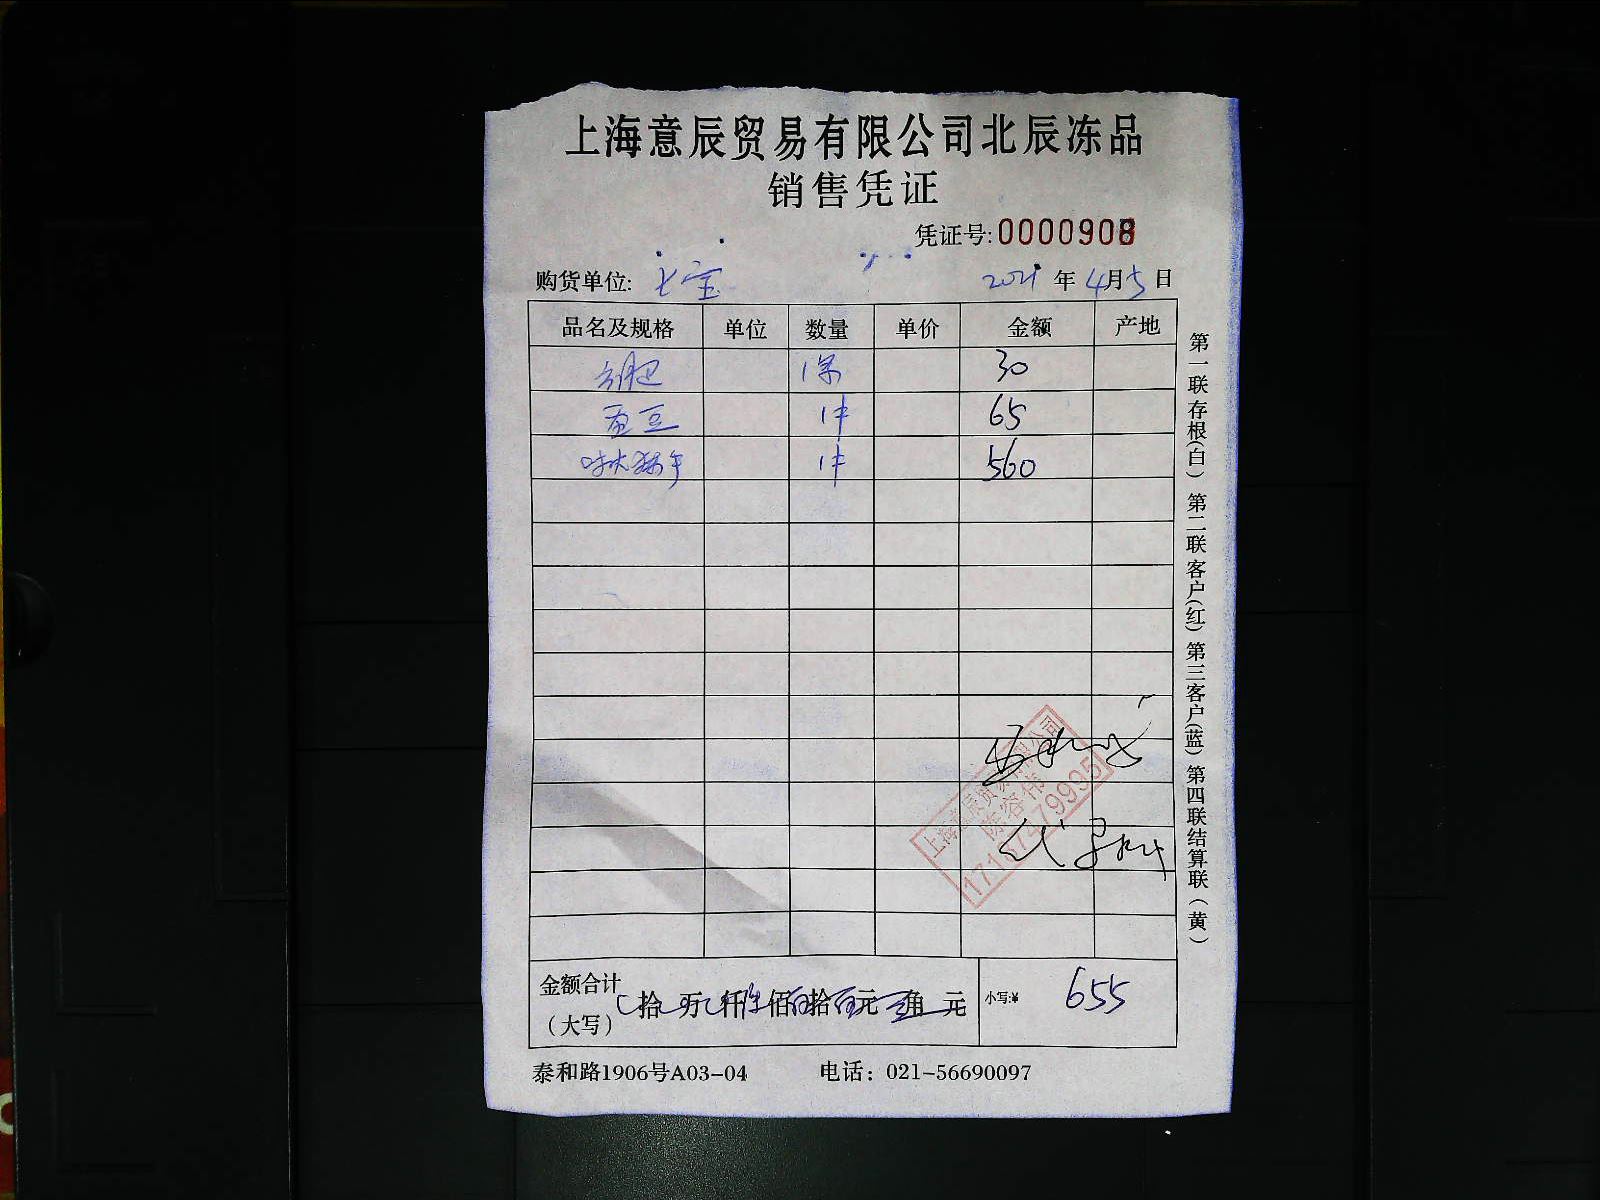 上海意辰贸易有限公司北辰冻品
销售凭证
凭证号:0000908
购货单位: 七宝 2021 年 4月5日
品名及规格 单位 数量 单价 金额 产地
1条 30
豆 1件 65
1件 560
上海意辰贸易有限公司
陈容伟
代
拾 万 仟 佰 拾 元 角 元
金额合计
（大写）
小写:¥ 655
泰和路1906号A03-04 电话：021-56690097
第一联存根(白) 第二联客户(红) 第三客户(蓝) 第四联结算联(黄)